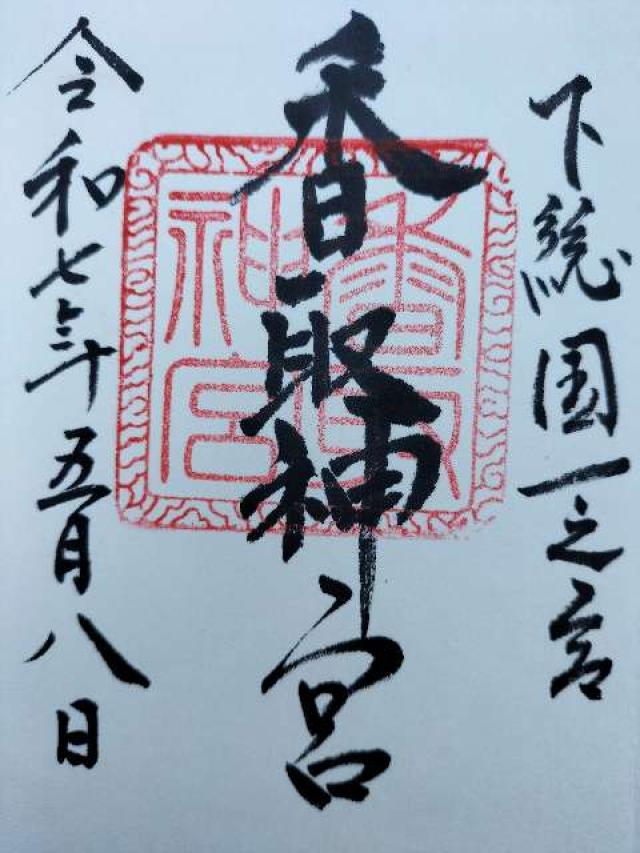 下総国一之宮
香取神宮
香取神宮
令和七年五月八日